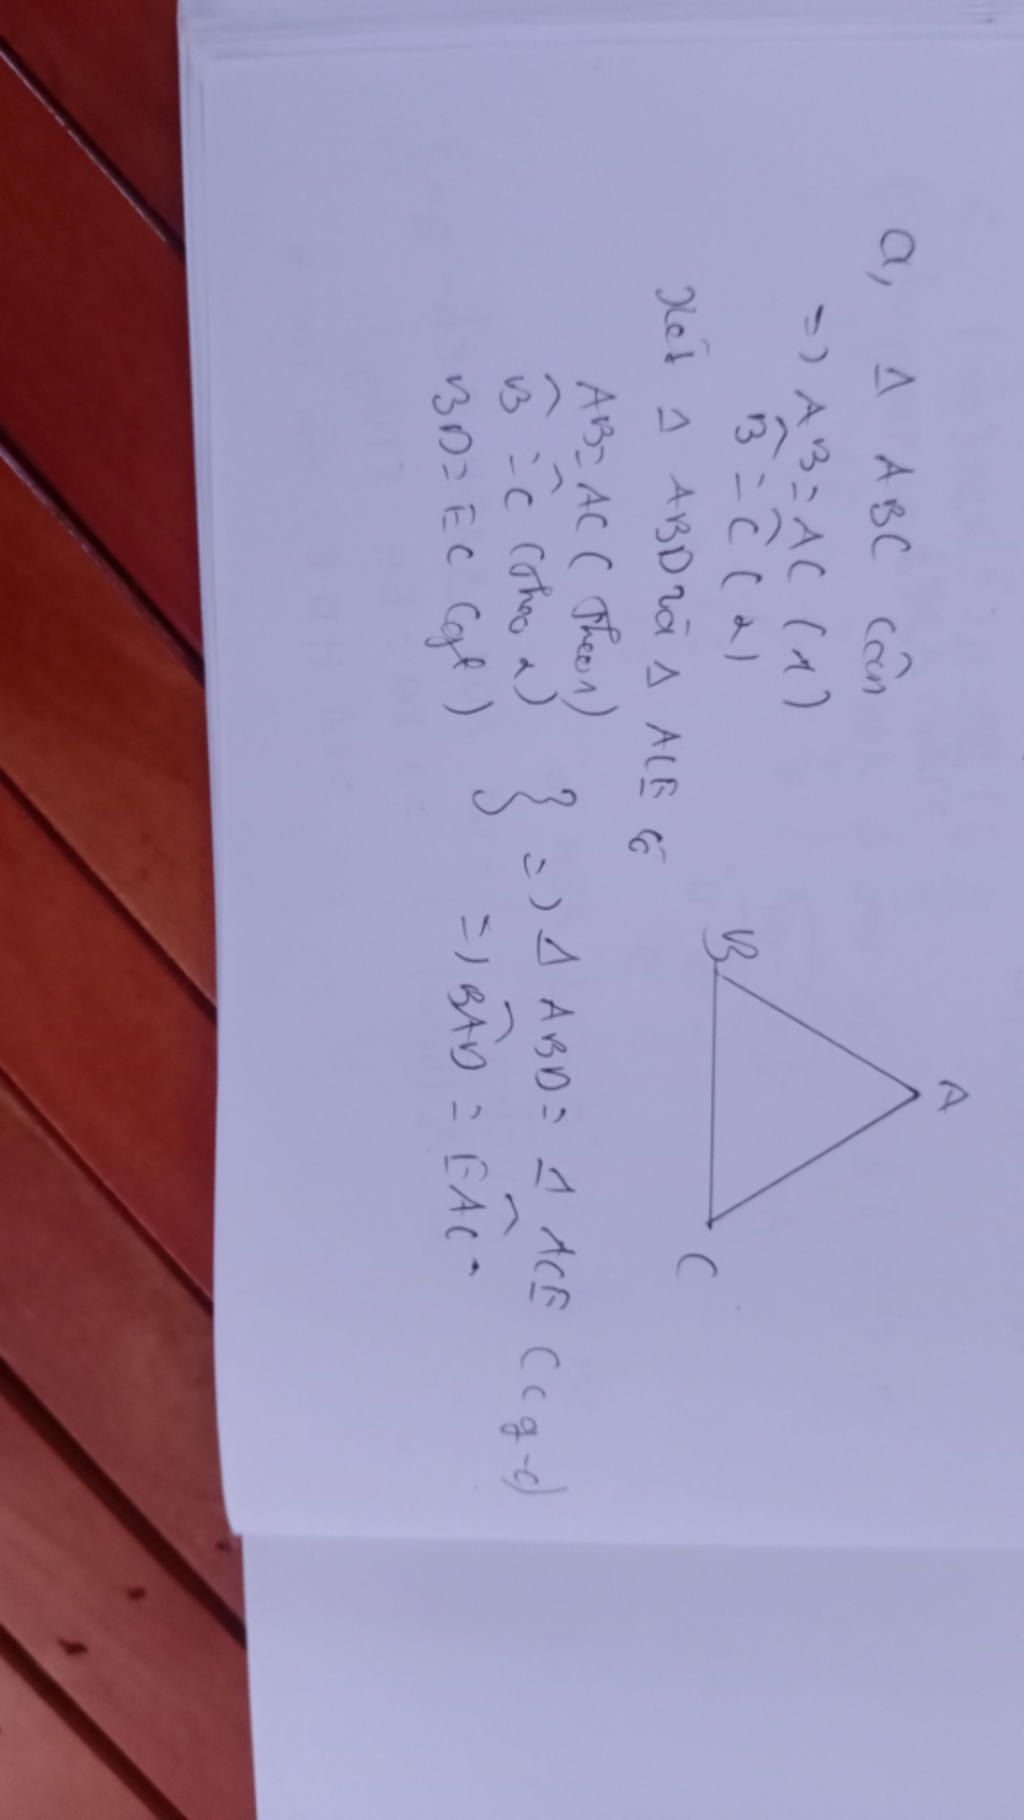 a, Δ ABC cân
=) AB = AC (1)
B̂ = Ĉ (2)
Xét Δ ABD và Δ ACE có
AB = AC (Theo 1)
B̂ = Ĉ (theo 2)
BD = EC (gt)
} =) Δ ABD = Δ ACE (c g-c)
=) BÂD = EÂC.
A
B
C